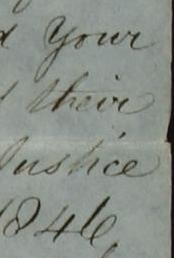 Your
their
Justice
1846,